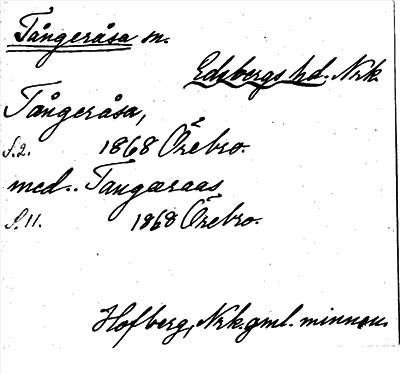 Tångeråsa sn.
Edsbergs hd. Nrk.
Tångeråsa,
s.2. 1868 Örebro.
med.. Tangæraas
s.11. 1868 Örebro.
Hofberg, Nrk.gml. minnen.